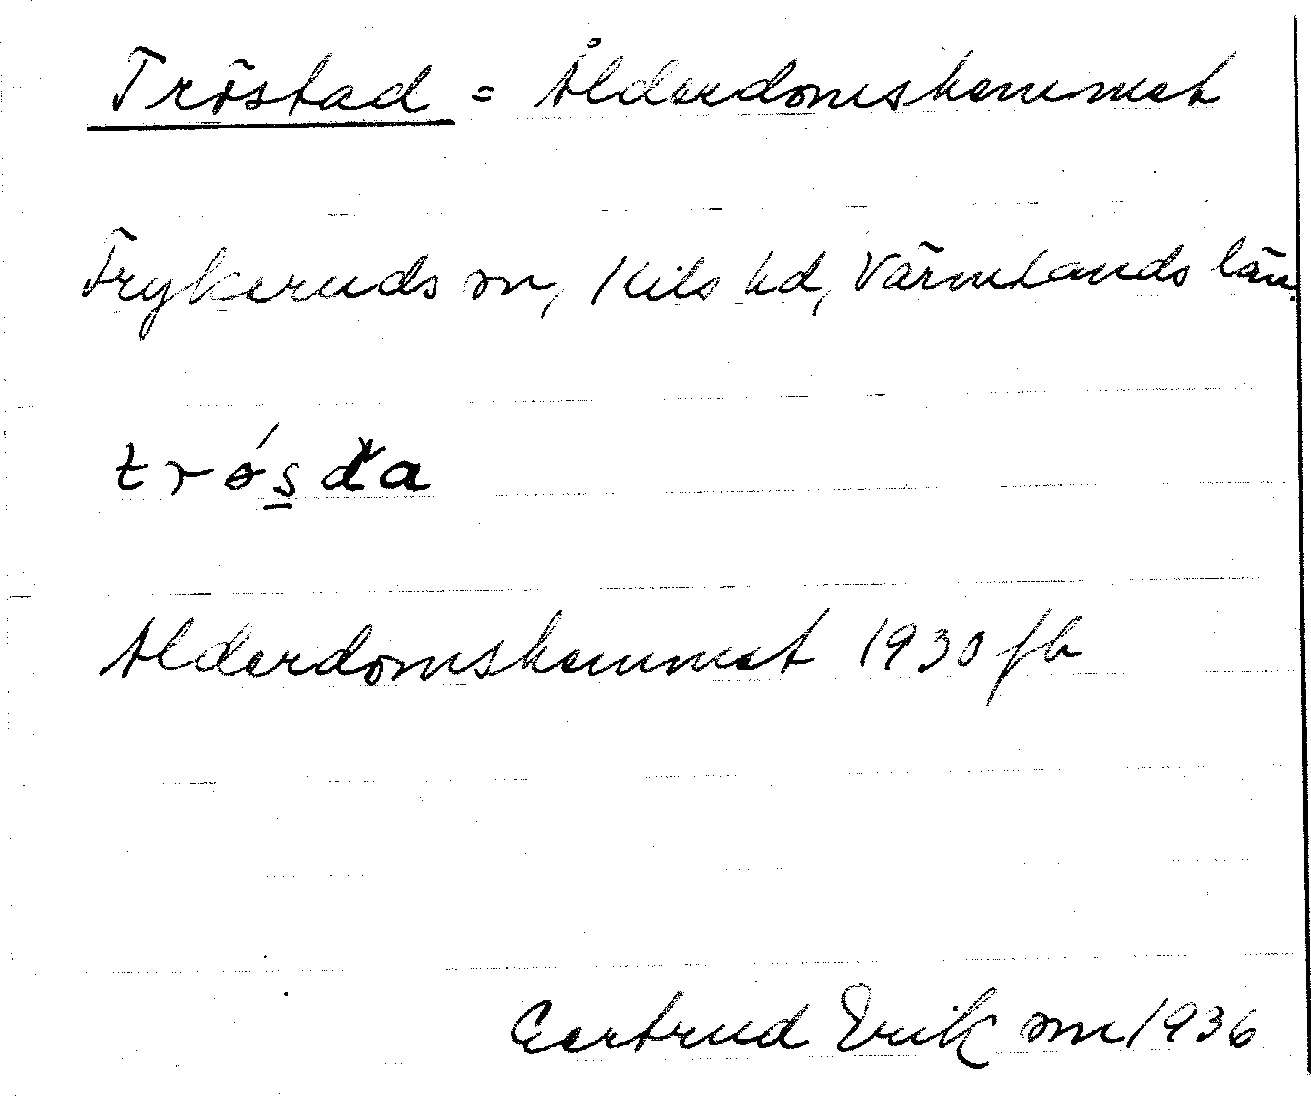 Tröstad = Ålderdomshemmet
Frykeruds sn, Kils hd, Värmlands län.
Ålderdomshemmet 1930 fb
Gertrud Erik sson 1936